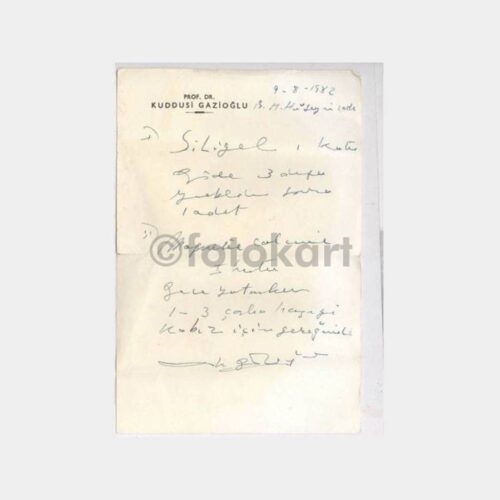 9-8-1982
PROF. DR.
KUDDUSİ GAZİOĞLU
B. M.
1) Siligel 1 Kutu
Günde 3 defa
yemekten sonra
1 adet
©fotokart
Gece yatarken
1-3 çorba kaşığı
Kabız için gereğinde